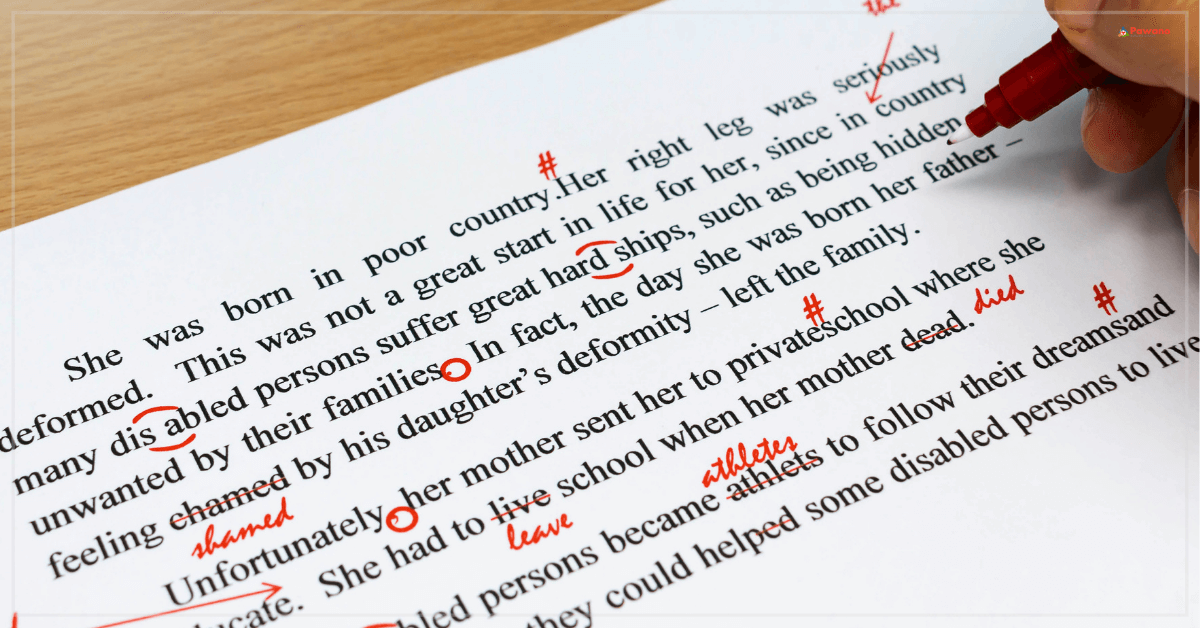 the
#
She was born in poor country.Her right leg was seriously
deformed. This was not a great start in life for her, since in country
many dis abled persons suffer great hard ships, such as being hidden
unwanted by their families. In fact, the day she was born her father –
feeling chamed by his daughter's deformity – left the family.
shamed
#
Unfortunately, her mother sent her to privateschool where she
died
ucate. She had to live school when her mother dead.
leave
athletes
#
bled persons became athlets to follow their dreamsand
they could helped some disabled persons to live